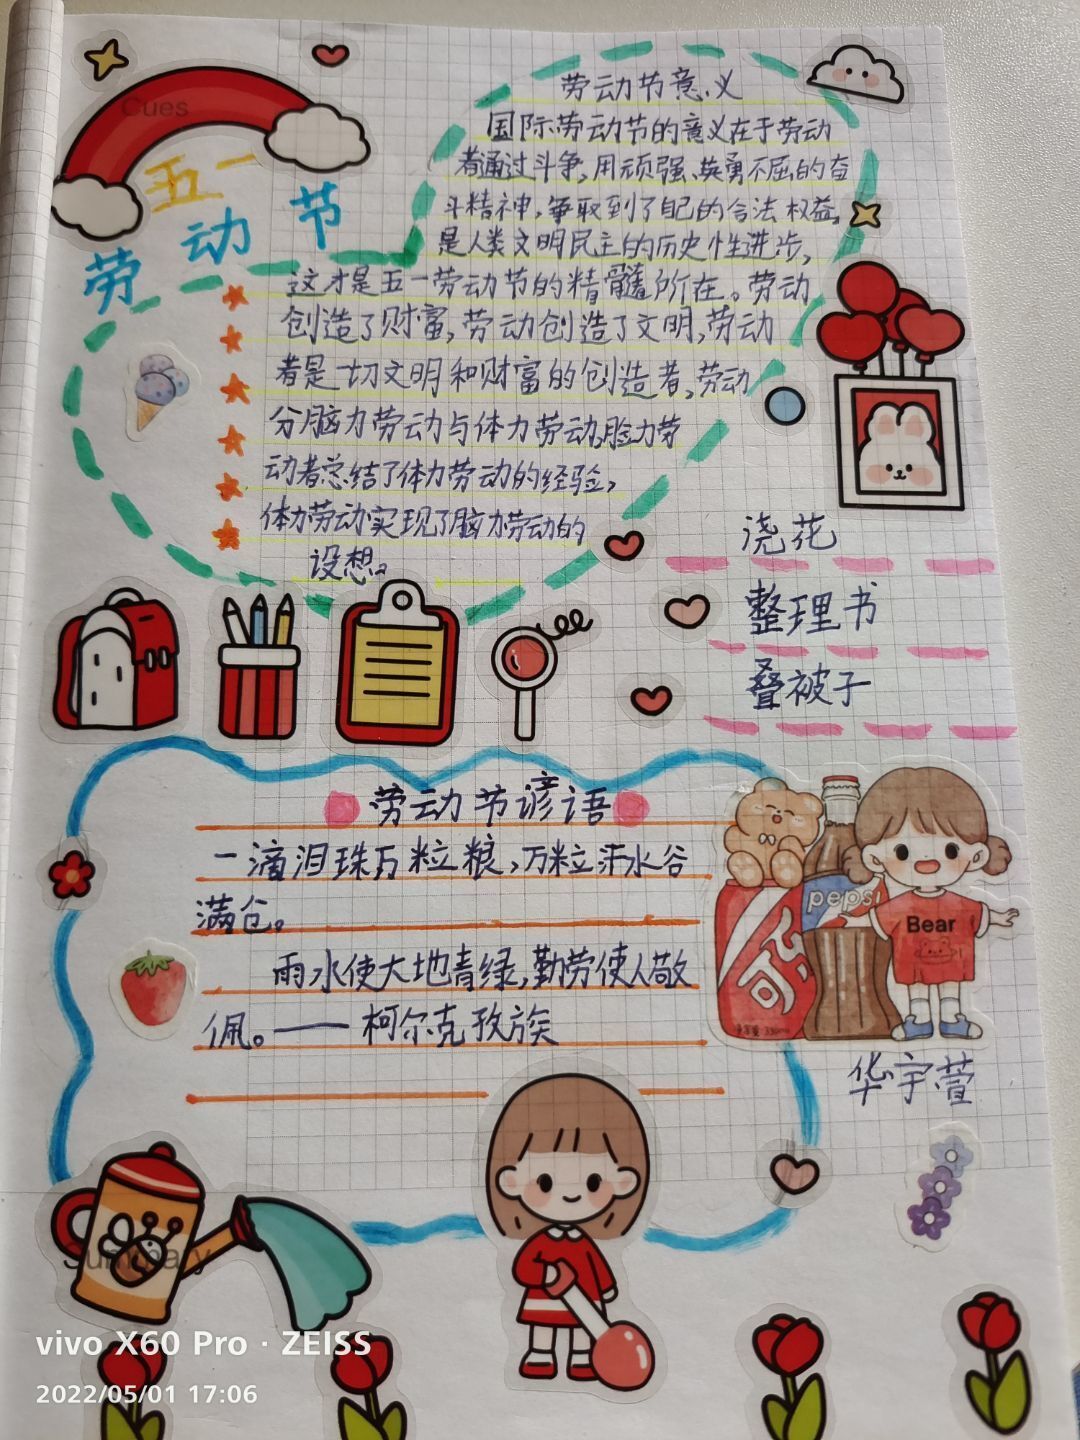 Cues
五一
劳动节
劳动节意义
国际劳动节的意义在于劳动
者通过斗争,用顽强、英勇不屈的奋
斗精神,争取到了自己的合法权益,
是人类文明民主的历史性进步,
这才是五一劳动节的精髓所在。劳动
创造了财富,劳动创造了文明,劳动
者是一切文明和财富的创造者,劳动
分脑力劳动与体力劳动,脸力劳
动者总结了体力劳动的经验,
体力劳动实现了脑力劳动的
设想。
浇花
整理书
叠被子
劳动节谚语
一滴泪珠万粒粮,万粒汗水谷
满仓。
雨水使大地青绿,勤劳使人敬
佩。——柯尔克孜族
pepsi
Bear
可
华宇萱
Summary
vivo X60 Pro · ZEISS
2022/05/01 17:06